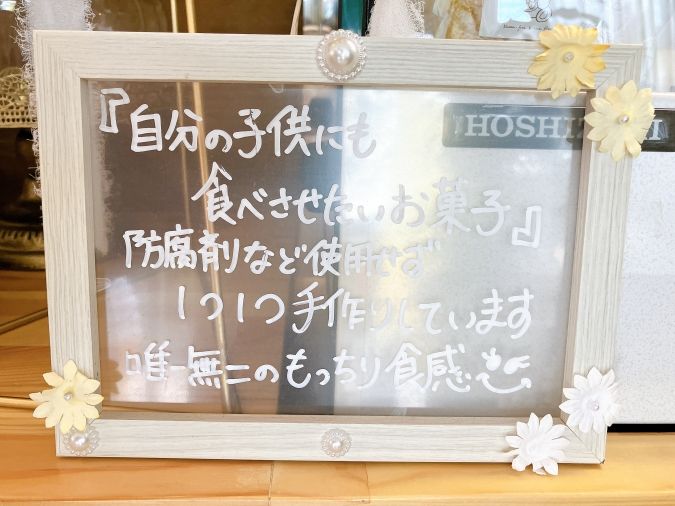 『自分の子供にも
食べさせたいお菓子』
防腐剤など使用せず
1つ1つ手作りしています
唯一無二のもっちり食感